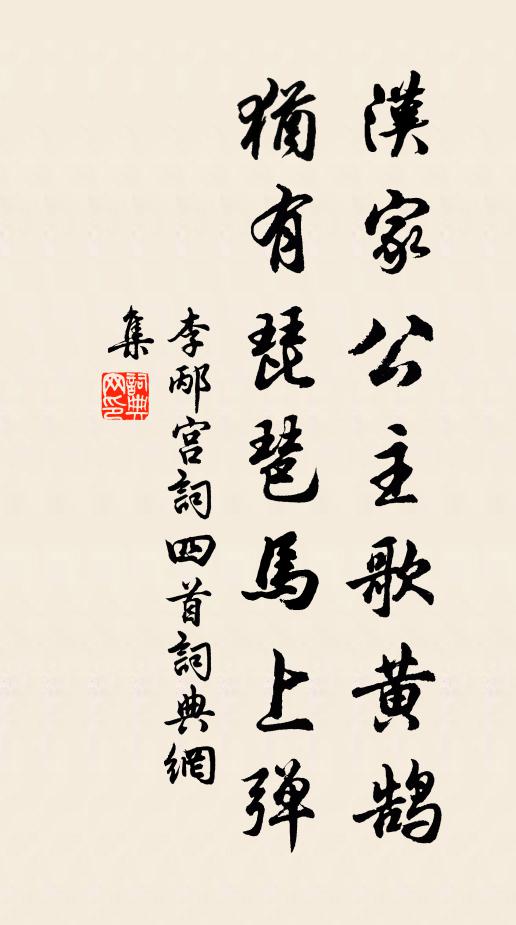 漢家公主歌黄鵠
猶有琵琶馬上弾
李邴宫詞四首詞典網
集
詞典
网印